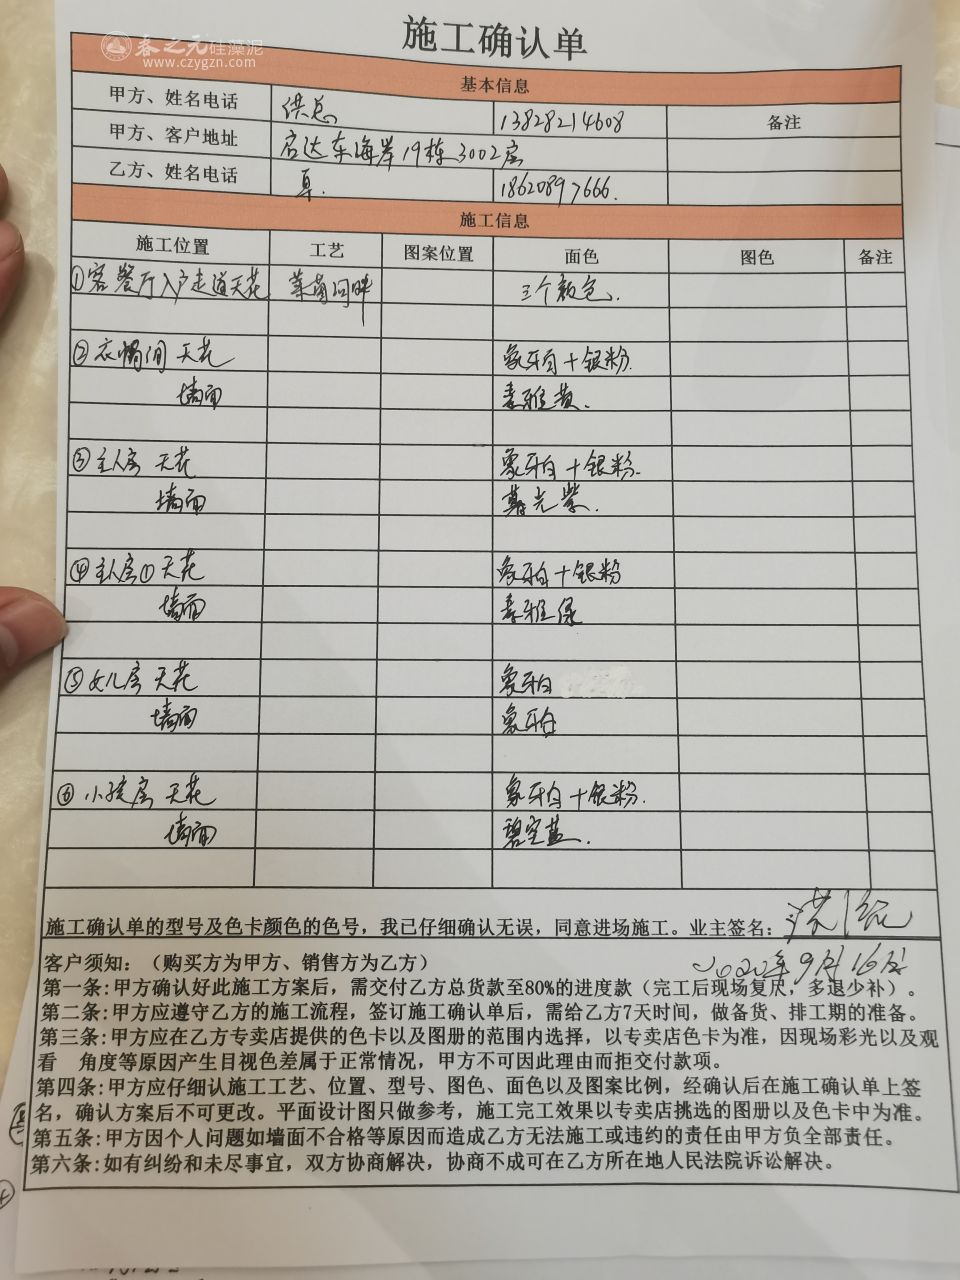 春之元硅藻泥
www.czygzn.com
施工确认单
基本信息
甲方、姓名电话 洪总 13828214608 备注
甲方、客户地址 启达东海岸19栋3002房
乙方、姓名电话 18620897666.
施工信息
施工位置 工艺 图案位置 面色 图色 备注
①客餐厅入户走道天花 莱茵河畔 三个颜色.
②衣帽间 天花 象牙白+银粉.
墙面 素雅黄.
③主人房 天花 象牙白+银粉.
墙面 暮光紫.
④主人房① 天花 象牙白+银粉
墙面 素雅绿
⑤女儿房 天花 象牙白
墙面 象牙白
⑥小孩房 天花 象牙白+银粉.
墙面 碧空蓝.
施工确认单的型号及色卡颜色的色号，我已仔细确认无误，同意进场施工。业主签名：
2020年9月16日
客户须知：（购买方为甲方、销售方为乙方）
第一条:甲方确认好此施工方案后，需交付乙方总货款至80%的进度款（完工后现场复尺，多退少补）。
第二条:甲方应遵守乙方的施工流程，签订施工确认单后，需给乙方7天时间，做备货、排工期的准备。
第三条:甲方应在乙方专卖店提供的色卡以及图册的范围内选择，以专卖店色卡为准，因现场彩光以及观
看 角度等原因产生目视色差属于正常情况，甲方不可因此理由而拒交付款项。
第四条:甲方应仔细认施工工艺、位置、型号、图色、面色以及图案比例，经确认后在施工确认单上签
名，确认方案后不可更改。平面设计图只做参考，施工完工效果以专卖店挑选的图册以及色卡中为准。
第五条:甲方因个人问题如墙面不合格等原因而造成乙方无法施工或违约的责任由甲方负全部责任。
第六条:如有纠纷和未尽事宜，双方协商解决，协商不成可在乙方所在地人民法院诉讼解决。